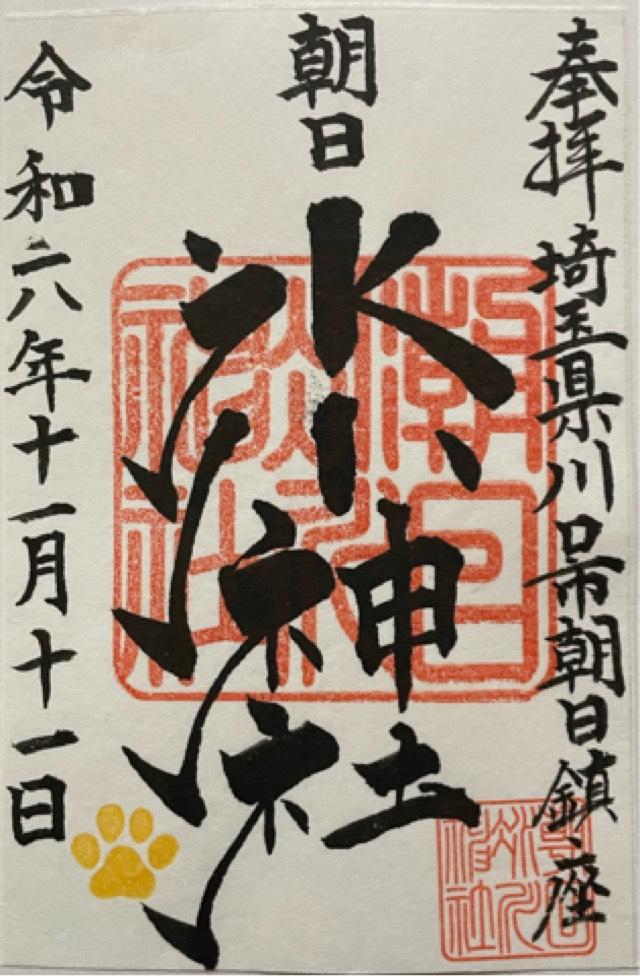 奉拝 埼玉県川口市朝日鎮座
朝日
氷川神社
令和六年十一月十一日
朝日
氷川
神社